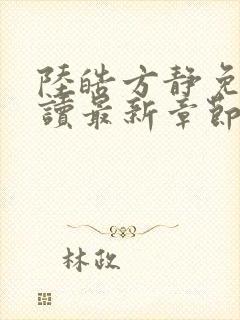 陸皓方靜免
讀最新章節
林政